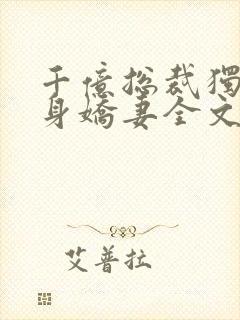 千億總裁獨
身嬌妻全文
艾普拉